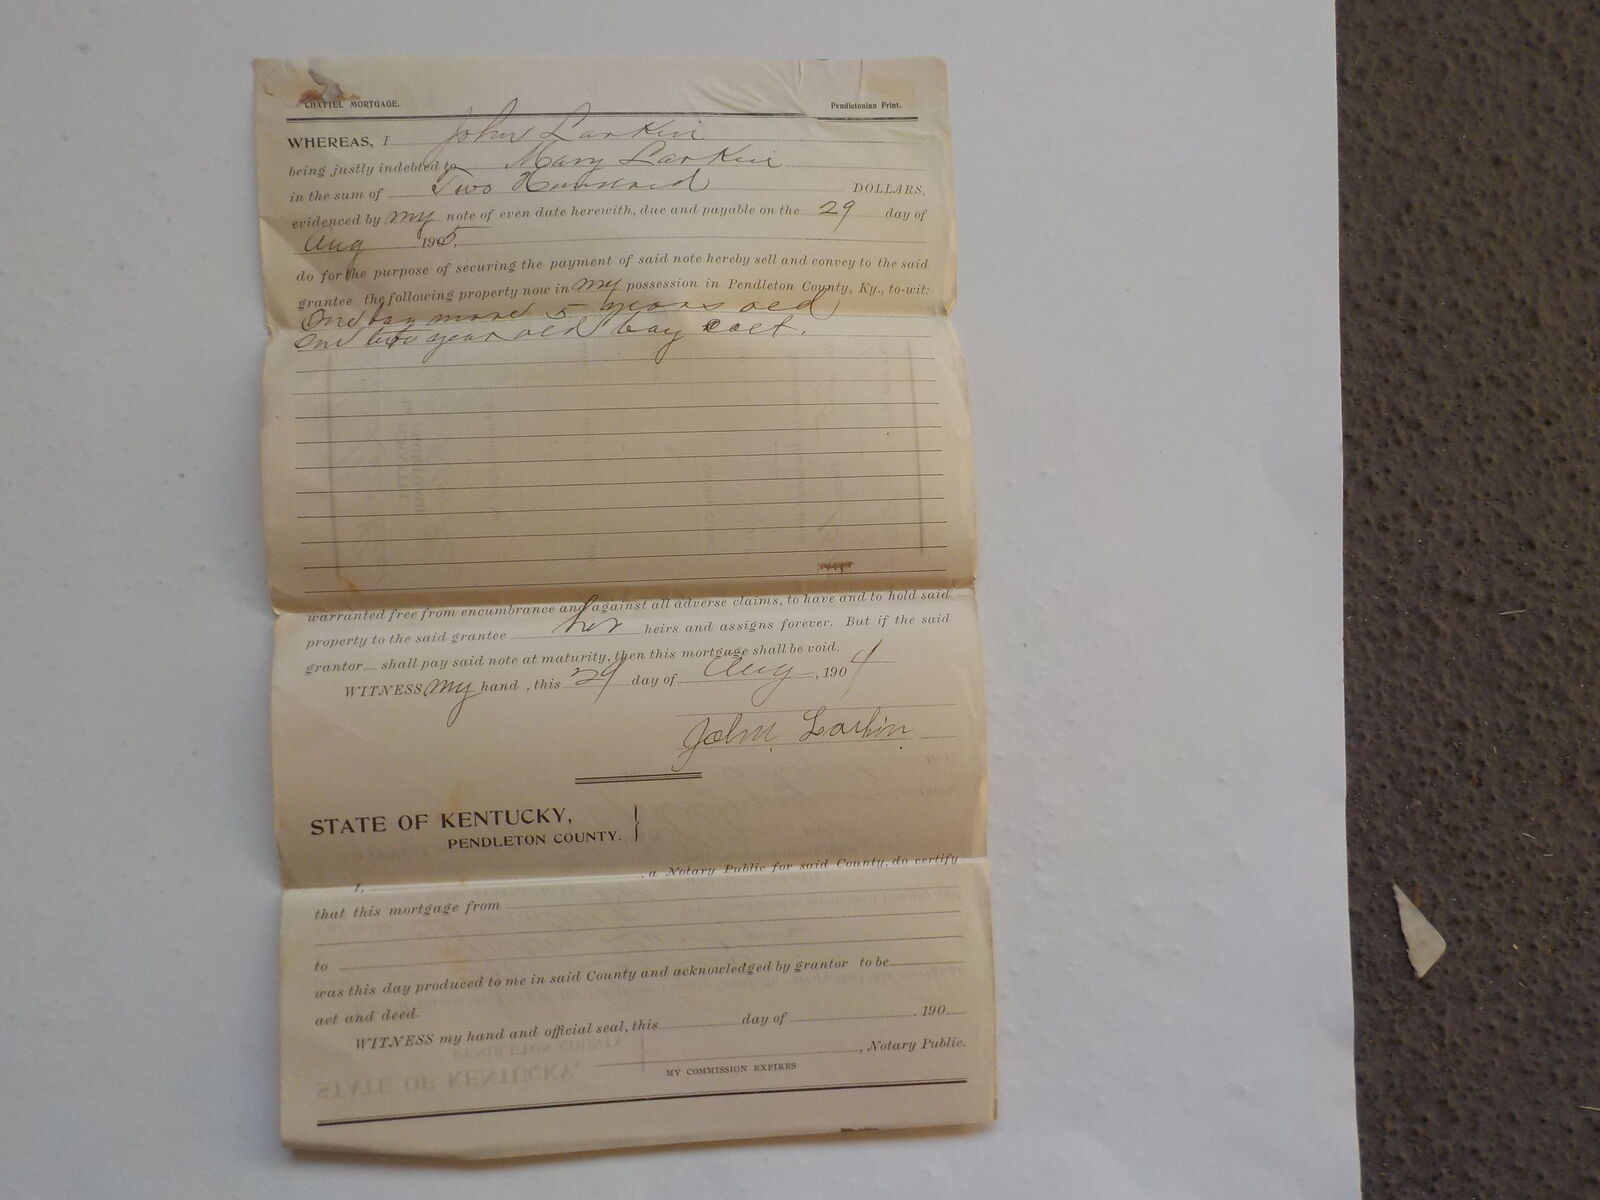 CHATTEL MORTGAGE. Pendletonian Print.
WHEREAS, I John Larkin
being justly indebted to Mary Larkin
in the sum of Two Hundred DOLLARS,
evidenced by my note of even date herewith, due and payable on the 29 day of
Aug 1905.
do for the purpose of securing the payment of said note hereby sell and convey to the said
grantee the following property now in my possession in Pendleton County, Ky., to-wit:
One bay mare 5 years old
One two year old bay colt.
warranted free from encumbrance and against all adverse claims, to have and to hold said
property to the said grantee her heirs and assigns forever. But if the said
grantor shall pay said note at maturity, then this mortgage shall be void.
WITNESS my hand , this 29 day of Aug , 1904
John Larkin
STATE OF KENTUCKY,
PENDLETON COUNTY. }
I, , a Notary Public for said County, do certify
that this mortgage from
to
was this day produced to me in said County and acknowledged by grantor to be
act and deed.
WITNESS my hand and official seal, this day of , 190
, Notary Public.
MY COMMISSION EXPIRES